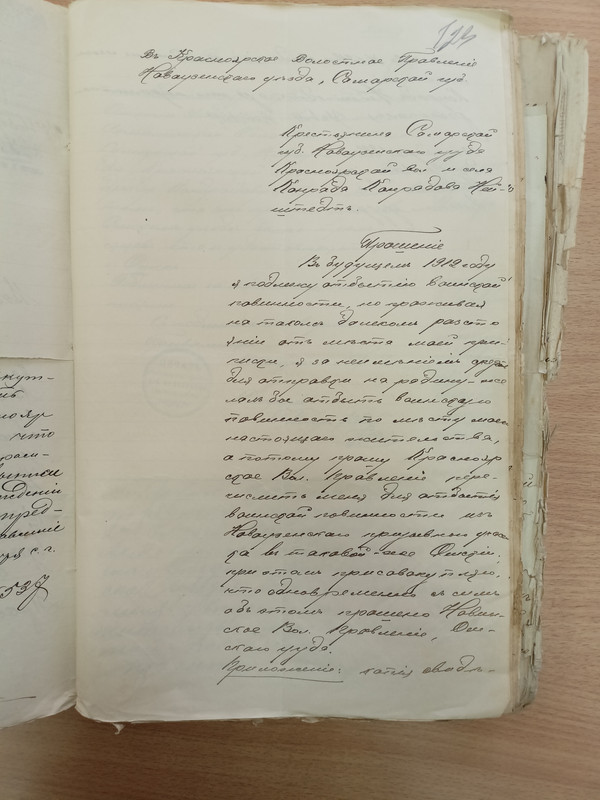 123
Въ Красноярское Волостное Правленіе
Новоузенскаго уѣзда, Самарской губ.
Крестьянина Самарской
губ. Новоузенскаго уѣзда
Красноярской вол. и села
Конрада Конрадова Ней-
штедтъ.
Прошеніе
Въ будущемъ 1912 году
я подлежу отбытію воинской
повинности, но проживая
на такомъ далекомъ разсто
яніи отъ мѣста моей при-
писки, я за неимѣніемъ средствъ
для отправки на родину, же
лалъ бы отбыть воинскую
повинность по мѣсту моего
настоящаго жительства,
а потому прошу Краснояр
ское Вол. Правленіе пере-
числить меня для отбытія
воинской повинности изъ
Новоузенскаго призывного участ
ка въ таковой-же Ошскій,
при этомъ присовокупляю,
что одновременно съ симъ
объ этомъ прошено
ское Вол. Правленіе, Ош-
скаго уѣзда.
Приложеніе: копія
кут-
нояр
что
предъ-
537